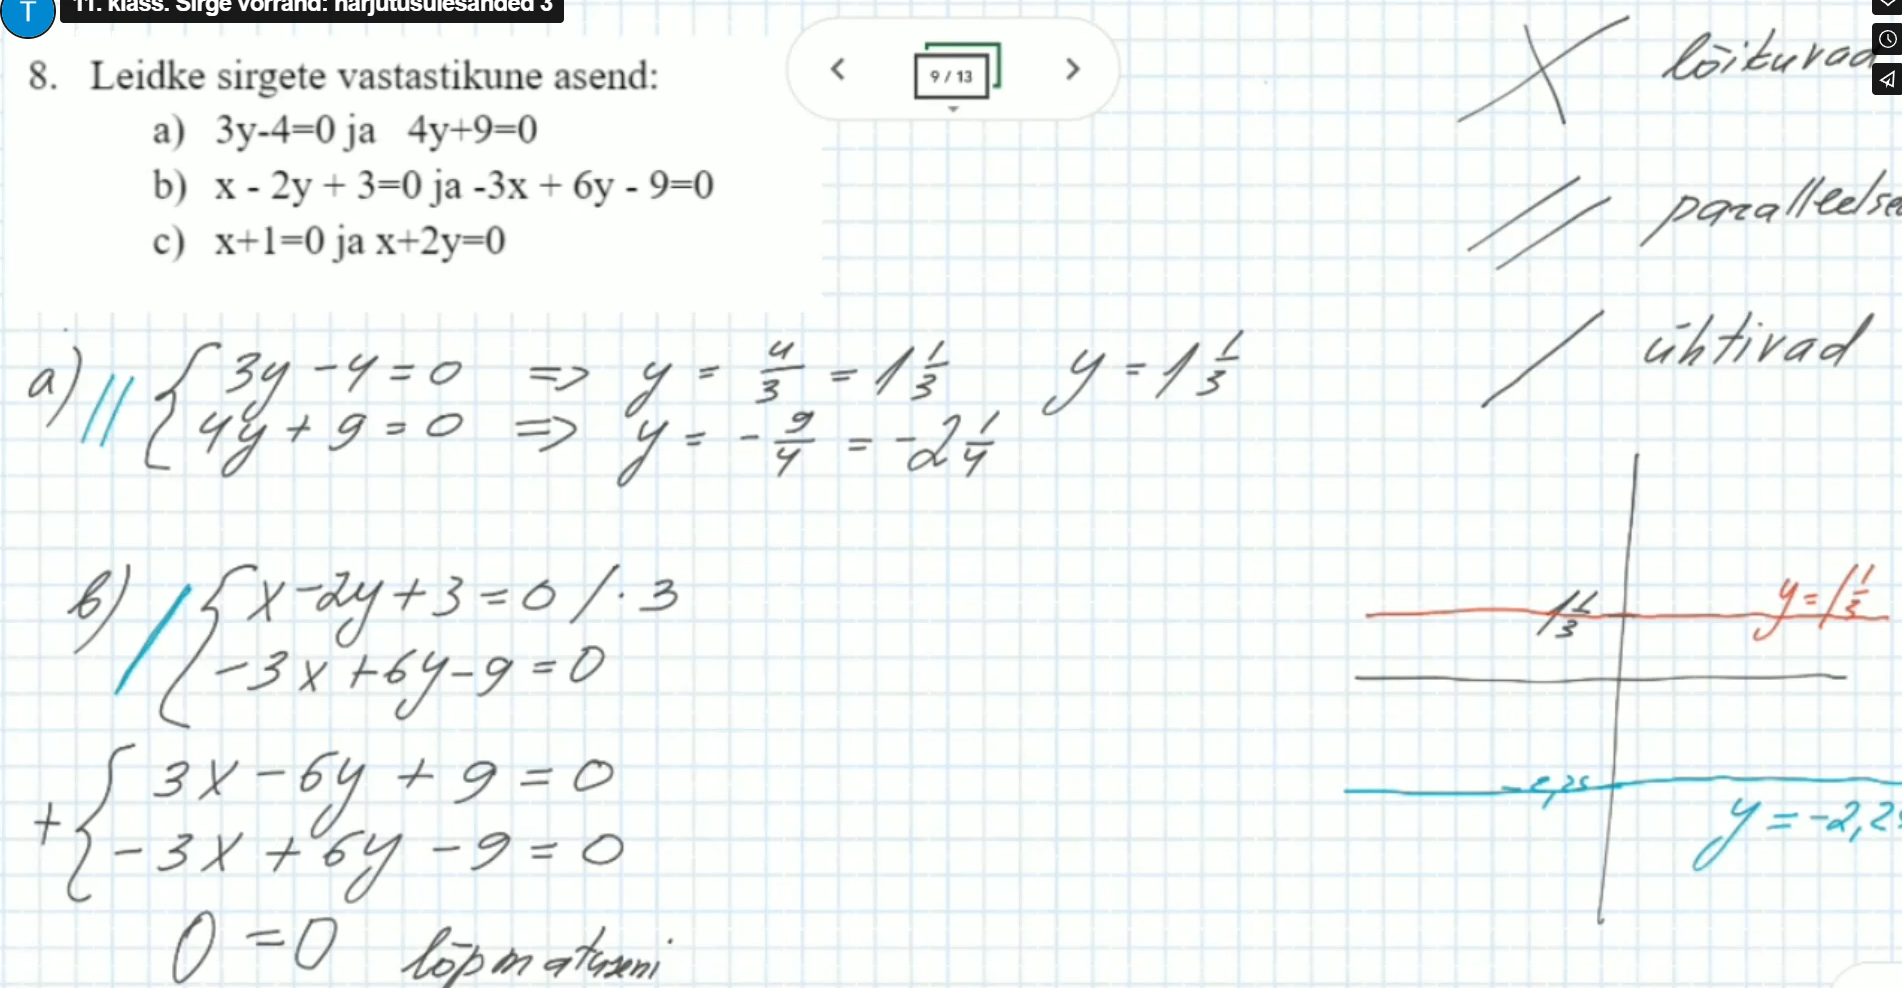 11. klass. Sirge võrrand: harjutusülesanded 3
T
9 / 13
8. Leidke sirgete vastastikune asend:
a) 3y-4=0 ja 4y+9=0
b) x - 2y + 3=0 ja -3x + 6y - 9=0
c) x+1=0 ja x+2y=0
lõikuvad
paralleelse
ühtivad
a) // { 3y - 4 = 0 => y = 4/3 = 1 1/3 y = 1 1/3
4y + 9 = 0 => y = - 9/4 = -2 1/4
b) / { x - 2y + 3 = 0 / · 3
-3x + 6y - 9 = 0
+ { 3x - 6y + 9 = 0
-3x + 6y - 9 = 0
0 = 0 lõpmatuseni
1 1/3 y = 1 1/3
-2,25
y = -2,2